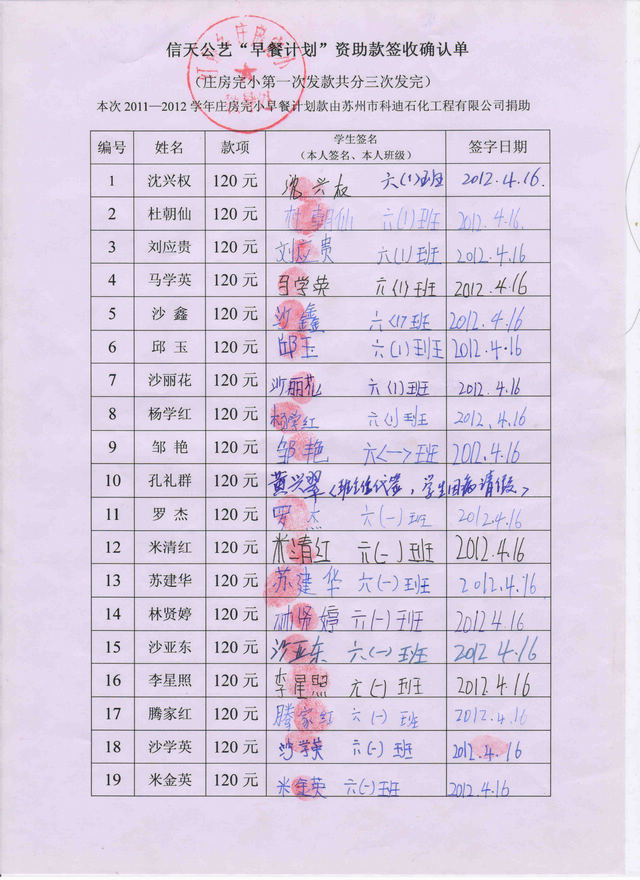 信天公艺“早餐计划”资助款签收确认单
（庄房完小第一次发款共分三次发完）
本次 2011—2012 学年庄房完小早餐计划款由苏州市科迪石化工程有限公司捐助
编号 姓名 款项 学生签名 签字日期
（本人签名、本人班级）
1 沈兴权 120 元 沈兴权 六(1)班 2012.4.16.
2 杜朝仙 120 元 杜朝仙 六(1)班 2012.4.16.
3 刘应贵 120 元 刘应贵 六(1)班 2012.4.16
4 马学英 120 元 马学英 六(1)班 2012.4.16
5 沙 鑫 120 元 沙鑫 六<1>班 2012.4.16
6 邱 玉 120 元 邱玉 六(1)班 2012.4.16
7 沙丽花 120 元 沙丽花 六(1)班 2012.4.16
8 杨学红 120 元 杨学红 六(1)班 2012.4.16
9 邹 艳 120 元 邹艳 六<一>班 2012.4.16
10 孔礼群 120 元 黄兴翠<班主任代签，学生因病请假>
11 罗 杰 120 元 罗杰 六(一)班 2012.4.16
12 米清红 120 元 米清红 六(一)班 2012.4.16
13 苏建华 120 元 苏建华 六(一)班 2012.4.16
14 林贤婷 120 元 林贤婷 六(一)班 2012.4.16
15 沙亚东 120 元 沙亚东 六(一)班 2012.4.16
16 李星照 120 元 李星照 六(一)班 2012.4.16
17 腾家红 120 元 腾家红 六(一)班 2012.4.16
18 沙学英 120 元 沙学英 六(一)班 2012.4.16
19 米金英 120 元 米金英 六(一)班 2012.4.16